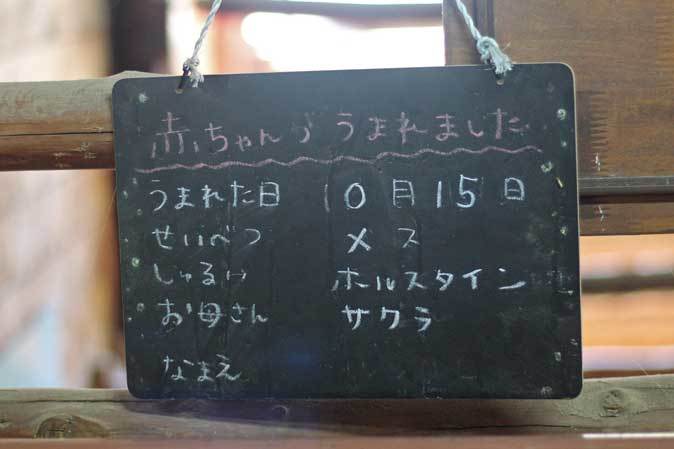 赤ちゃんがうまれました
うまれた日 10月15日
せいべつ メス
しゅるい ホルスタイン
お母さん サクラ
なまえ